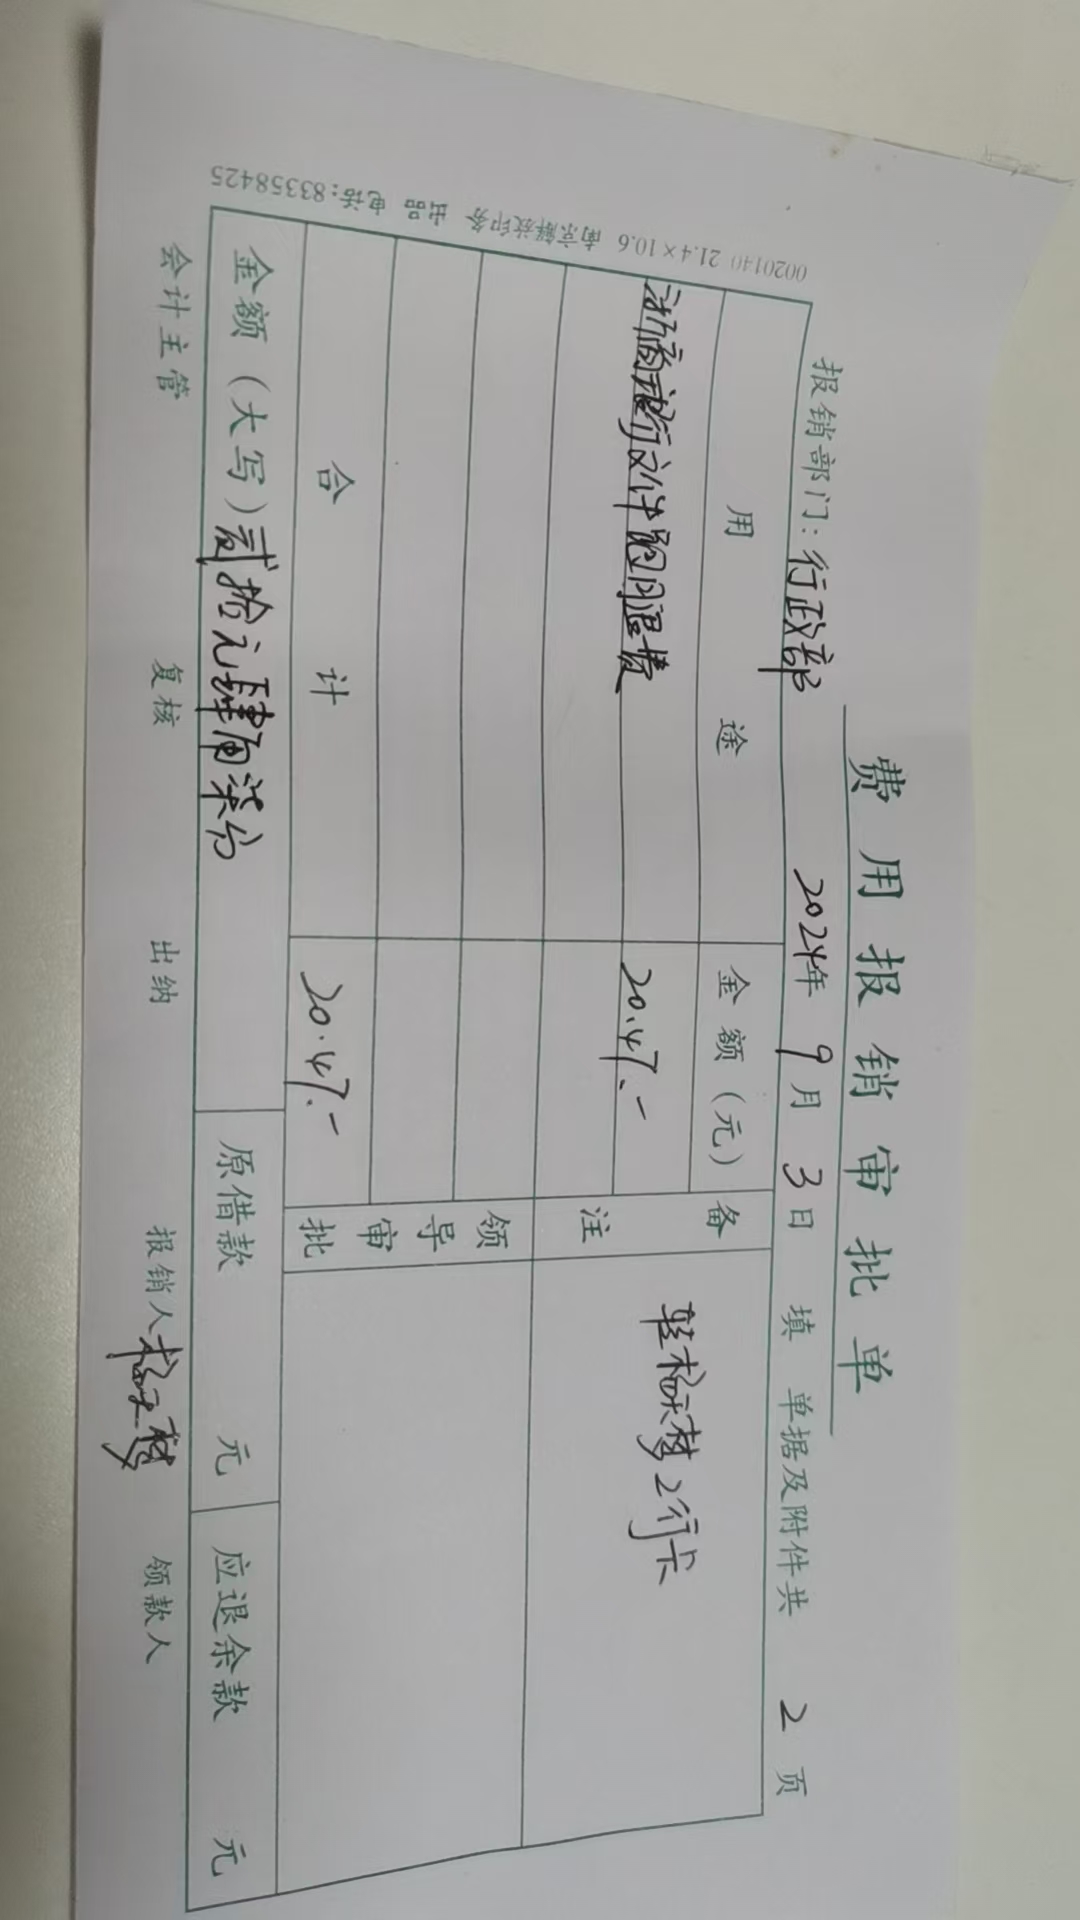 费用报销审批单
报销部门：行政部 2024年 9月 3日 填 单据及附件共 2 页
用途 金额（元） 备注
浙商银行文件 20.47.- 转杨天梦工行卡
领导审批
合计 20.47.-
金额（大写）贰拾元肆角柒分 原借款 元 应退余款 元
会计主管 复核 出纳 报销人 杨天梦 领款人
0020140 21.4×10.6 南京解放印务 出品 电话：83358425